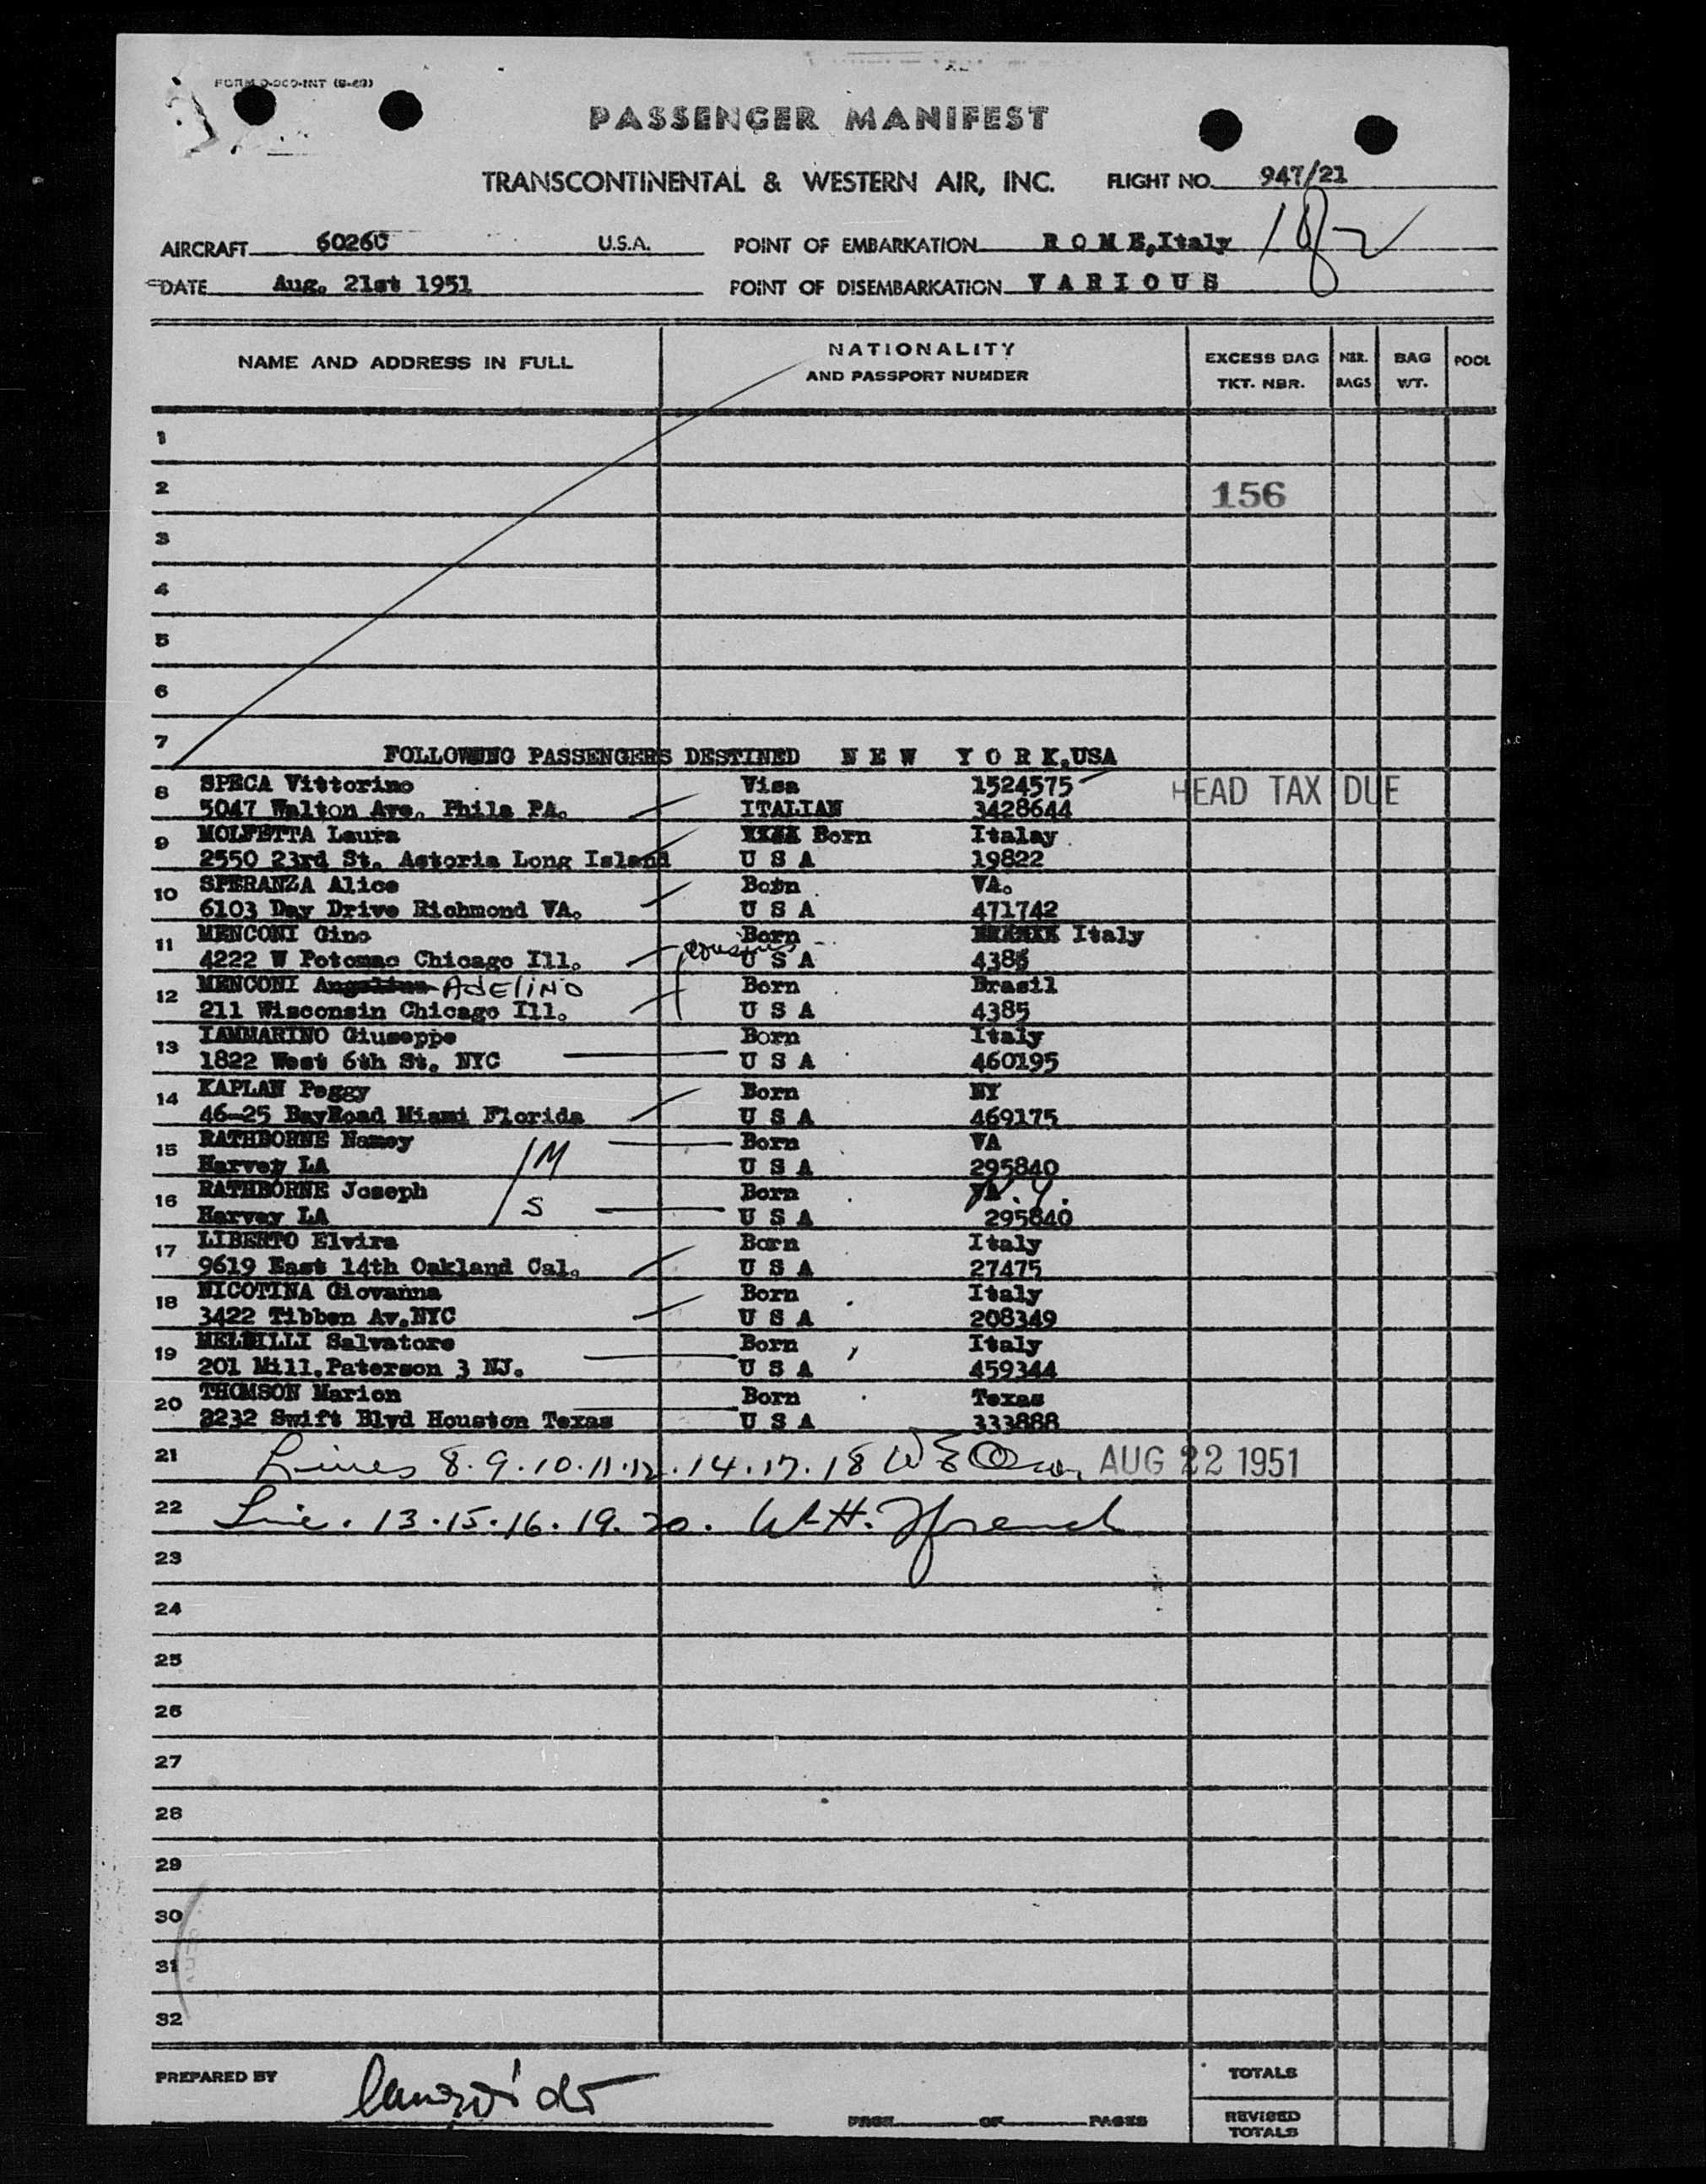 PASSENGER MANIFEST
TRANSCONTINENTAL & WESTERN AIR, INC. FLIGHT NO. 947/21
AIRCRAFT 6026C U.S.A. POINT OF EMBARKATION R O M E,Italy
DATE Aug. 21st 1951 POINT OF DISEMBARKATION V A R I O U S
NAME AND ADDRESS IN FULL NATIONALITY AND PASSPORT NUMBER EXCESS BAG TKT. NBR. NBR. BAGS BAG WT. POOL
1
2 156
3
4
5
6
7 FOLLOWING PASSENGERS DESTINED N E W Y O R K,USA
8 SPECA Vittorino Visa 1524575 HEAD TAX DUE
5047 Walton Ave. Phila PA. ITALIAN 3428644
9 MOLFETTA Laura Born Italay
2550 23rd St. Astoria Long Island U S A 19822
10 SPERANZA Alice Born VA.
6103 Day Drive Richmond VA. U S A 471742
11 MENCONI Gino Born Italy
4222 W Potomac Chicago Ill. cousins U S A 4386
12 MENCONI Angelina ADELINO Born Brasil
211 Wisconsin Chicago Ill. U S A 4385
13 IAMMARINO Giuseppe Born Italy
1822 West 6th St. NYC U S A 460195
14 KAPLAN Peggy Born NY
46-25 BayRoad Miami Florida U S A 469175
15 RATHBORNE Namey M Born VA
Harvey LA U S A 295840
16 RATHBORNE Joseph Born N.Y.
Harvey LA S U S A 295840
17 LIBERTO Elvira Born Italy
9619 East 14th Oakland Cal. U S A 27475
18 NICOTINA Giovanna Born Italy
3422 Tibben Av.NYC U S A 208349
19 MELBILLI Salvatore Born Italy
201 Mill.Paterson 3 NJ. U S A 459344
20 THOMSON Marion Born Texas
2232 Swift Blvd Houston Texas U S A 333888
21 Lines 8.9.10.11.12.14.17.18 AUG 22 1951
22 Line. 13.15.16.19.20. W.H. French
23
24
25
26
27
28
29
30
31
32
PREPARED BY TOTALS
PAGE OF PAGES REVISED TOTALS